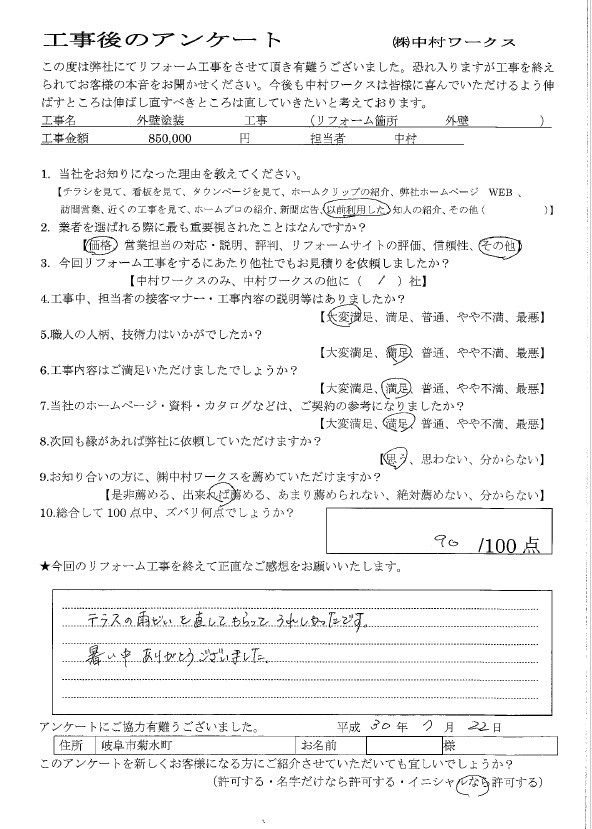 工事後のアンケート ㈱中村ワークス
この度は弊社にてリフォーム工事をさせて頂き有難うございました。恐れ入りますが工事を終え
られてお客様の本音をお聞かせください。今後も中村ワークスは皆様に喜んでいただけるよう伸
ばすところは伸ばし直すべきところは直していきたいと考えております。
工事名 外壁塗装 工事 (リフォーム箇所 外壁 )
工事金額 850,000 円 担当者 中村
1. 当社をお知りになった理由を教えてください。
【チラシを見て、看板を見て、タウンページを見て、ホームクリップの紹介、弊社ホームページ WEB 、
訪問営業、近くの工事を見て、ホームプロの紹介、新聞広告、以前利用した、知人の紹介、その他( )】
2. 業者を選ばれる際に最も重要視されたことはなんですか？
【価格、営業担当の対応・説明、評判、リフォームサイトの評価、信頼性、その他】
3. 今回リフォーム工事をするにあたり他社でもお見積りを依頼しましたか？
【中村ワークスのみ、中村ワークスの他に ( / ) 社】
4.工事中、担当者の接客マナー・工事内容の説明等はありましたか？
【大変満足、満足、普通、やや不満、最悪】
5.職人の人柄、技術力はいかがでしたか？
【大変満足、満足、普通、やや不満、最悪】
6.工事内容はご満足いただけましたでしょうか？
【大変満足、満足、普通、やや不満、最悪】
7.当社のホームページ・資料・カタログなどは、ご契約の参考になりましたか？
【大変満足、満足、普通、やや不満、最悪】
8.次回も縁があれば弊社に依頼していただけますか？
【思う、思わない、分からない】
9.お知り合いの方に、㈱中村ワークスを薦めていただけますか？
【是非薦める、出来れば薦める、あまり薦められない、絶対薦めない、分からない】
10.総合して 100 点中、ズバリ何点でしょうか？
90 /100 点
★今回のリフォーム工事を終えて正直なご感想をお願いいたします。
テラスの雨どいを直してもらって うれしかったです。
暑い中 ありがとうございました。
アンケートにご協力有難うございました。 平成 30 年 7 月 22 日
住所 岐阜市菊水町 お名前 様
このアンケートを新しくお客様になる方にご紹介させていただいても宜しいでしょうか？
(許可する・名字だけなら許可する・イニシャルなら許可する)